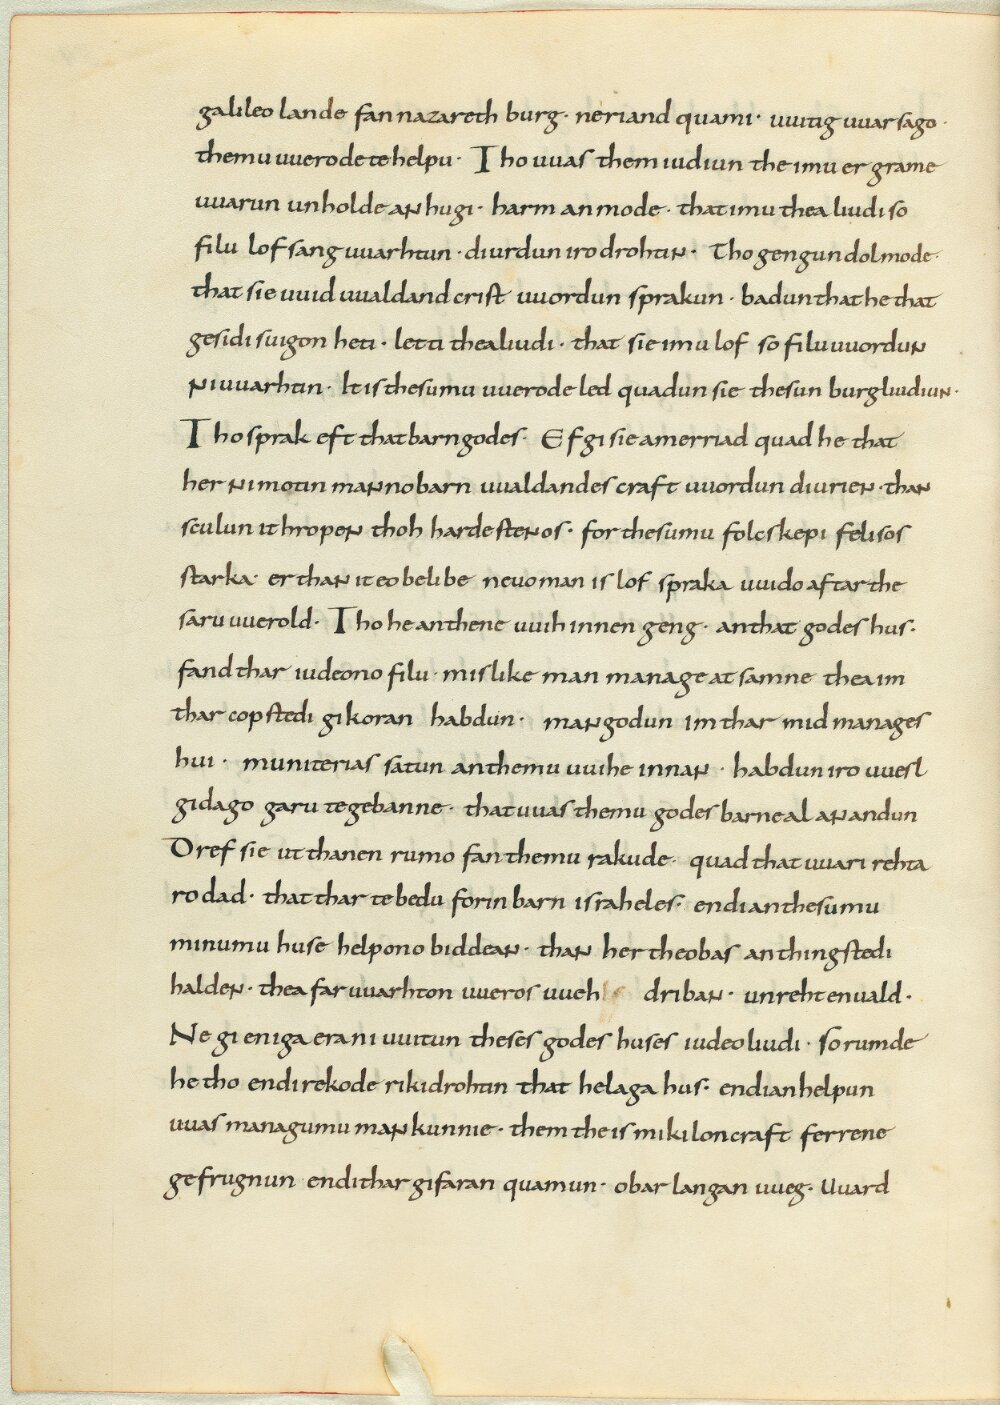 galileo lande fan nazareth burg · neriand quami · uuitig uuarsago ·
themu uuerode te helpu · Tho uuas them iudiun the imu er grame
uuarun unholde an hugi · harm an mode · that imu thea liudi so
filu lofsang uuarhtun · diurdun iro drohtin · Tho gengun dolmode ·
that sie uuid uualdand crist uuordun sprakun · badun that he that
gesidi suigon heti · letti thea liudi · that sie imu lof so filu uuordun
ni uuarhtin · It is thesumu uuerode led quadun sie thesun burgliudiun ·
Tho sprak eft that barn godes · Ef gi sie amerriad quad he that
her ni motin manno barn uualdandes craft uuordun diurien · than
sculun it hropen thoh harde stenos · for thesumu folcskepi felisos
starka · er than it eo belibe neuo man is lof spraka uuido aftar the
saru uuerold · Tho he an thene uuih innen geng · an that godes hus ·
fand thar iudeono filu · mislike man manage at samne thea im
thar copstedi gikoran habdun · mangodun im thar mid manages
hui · muniterias satun an themu uuihe innan · habdun iro uuesl
gidago garu te gebanne · that uuas themu godes barne al an andun
Dref sie ut thanen rumo fan themu rakude · quad that uuari rehta
ro dad · that thar te bedu forin barn israheles · endi an thesumu
minumu huse helpono biddean · than her theobas an thingstedi
halden · thea faruuarhton uueros uueh driban · unreht enuald ·
Ne gi eniga era ni uuitun theses godes huses iudeo liudi · so rumde
he tho endi rekode riki drohtin that helaga hus · endi an helpun
uuas managumu mankunnie · them the is mikilon craft ferrene
gefrugnun endi thar gifaran quamun · obar langan uueg · Uuard